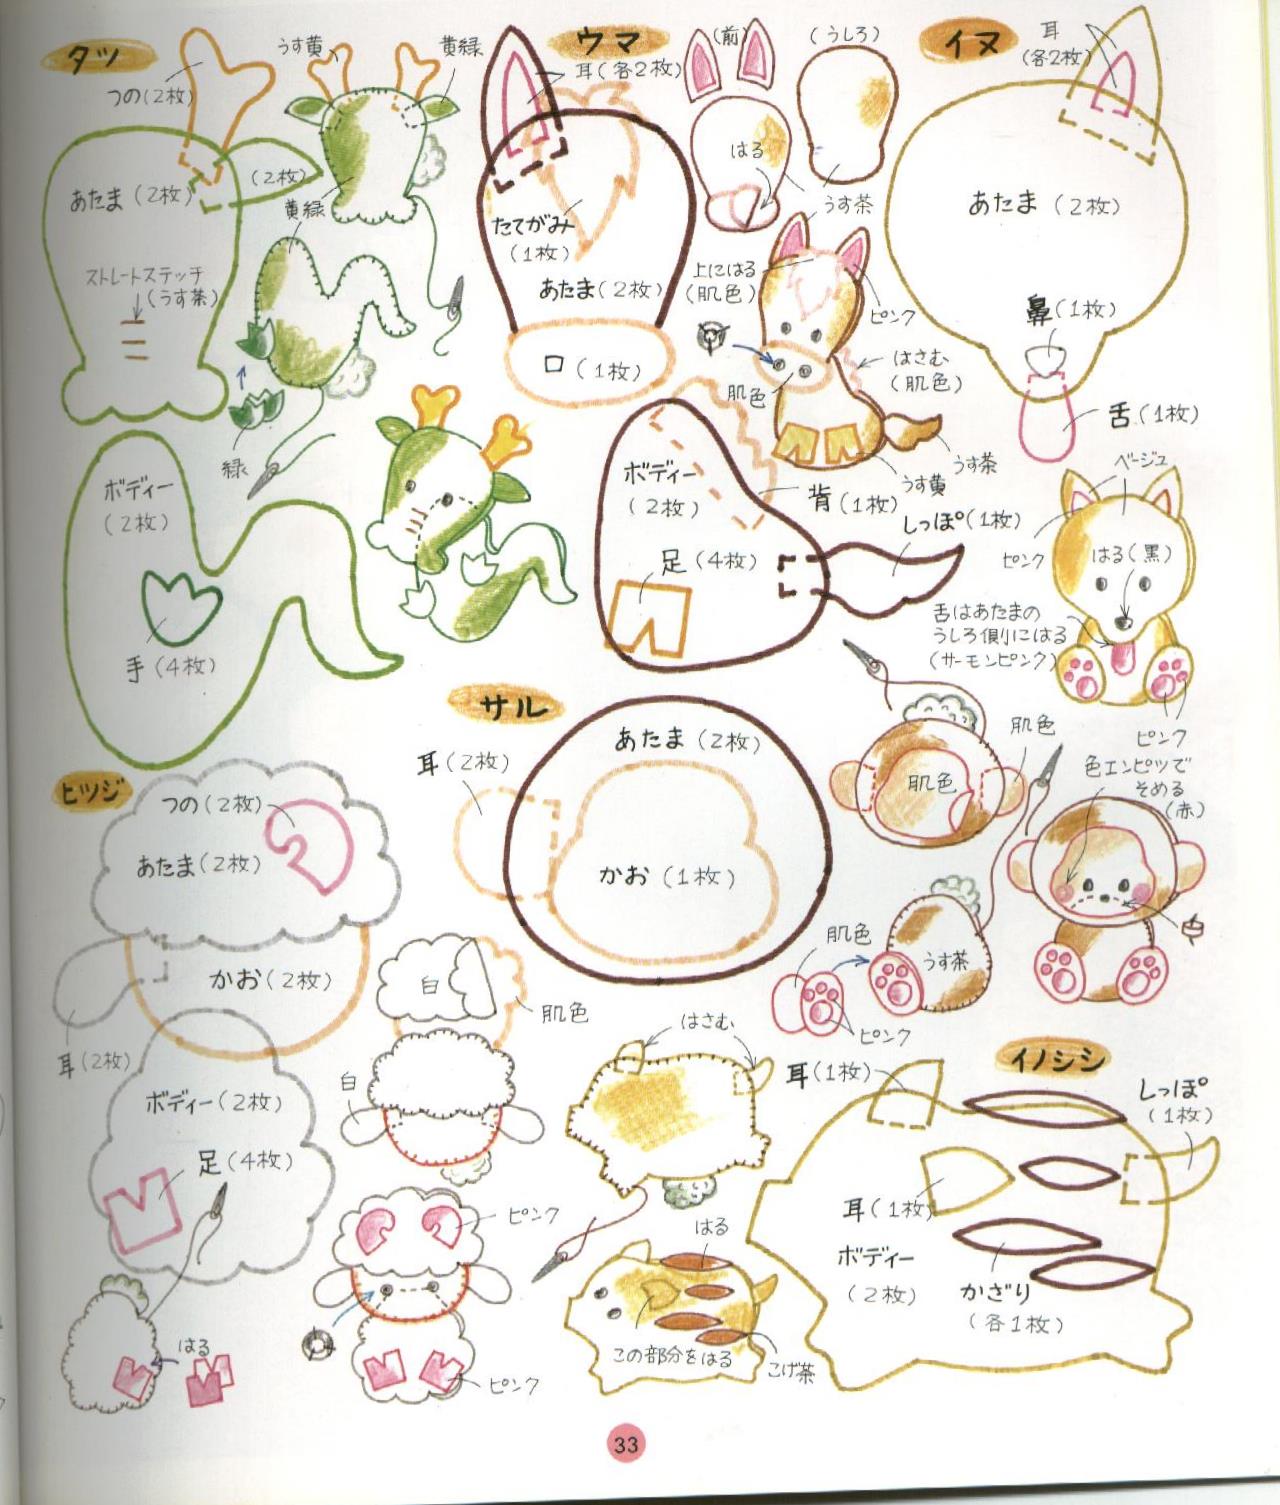 タツ
つの(2枚)
うす黄
黄緑
あたま(2枚)
(2枚)
黄緑
ストレートステッチ
(うす茶)
緑
ボディー
(2枚)
手(4枚)
ウマ
耳(各2枚)
(前)
(うしろ)
はる
うす茶
たてがみ
(1枚)
あたま(2枚)
口(1枚)
上にはる
(肌色)
ピンク
はさむ
(肌色)
肌色
うす茶
うす黄
ボディー
(2枚)
背(1枚)
しっぽ(1枚)
足(4枚)
イヌ
耳
(各2枚)
あたま(2枚)
鼻(1枚)
舌(1枚)
ベージュ
ピンク
はる(黒)
舌はあたまの
うしろ側にはる
(サーモンピンク)
ピンク
サル
あたま(2枚)
耳(2枚)
かお(1枚)
肌色
肌色
色エンピツで
そめる
(赤)
白
肌色
うす茶
ピンク
ヒツジ
つの(2枚)
あたま(2枚)
かお(2枚)
耳(2枚)
白
肌色
ボディー(2枚)
白
足(4枚)
ピンク
はる
ピンク
イノシシ
はさむ
耳(1枚)
しっぽ
(1枚)
耳(1枚)
ボディー
(2枚)
かざり
(各1枚)
はる
この部分をはる
こげ茶
33